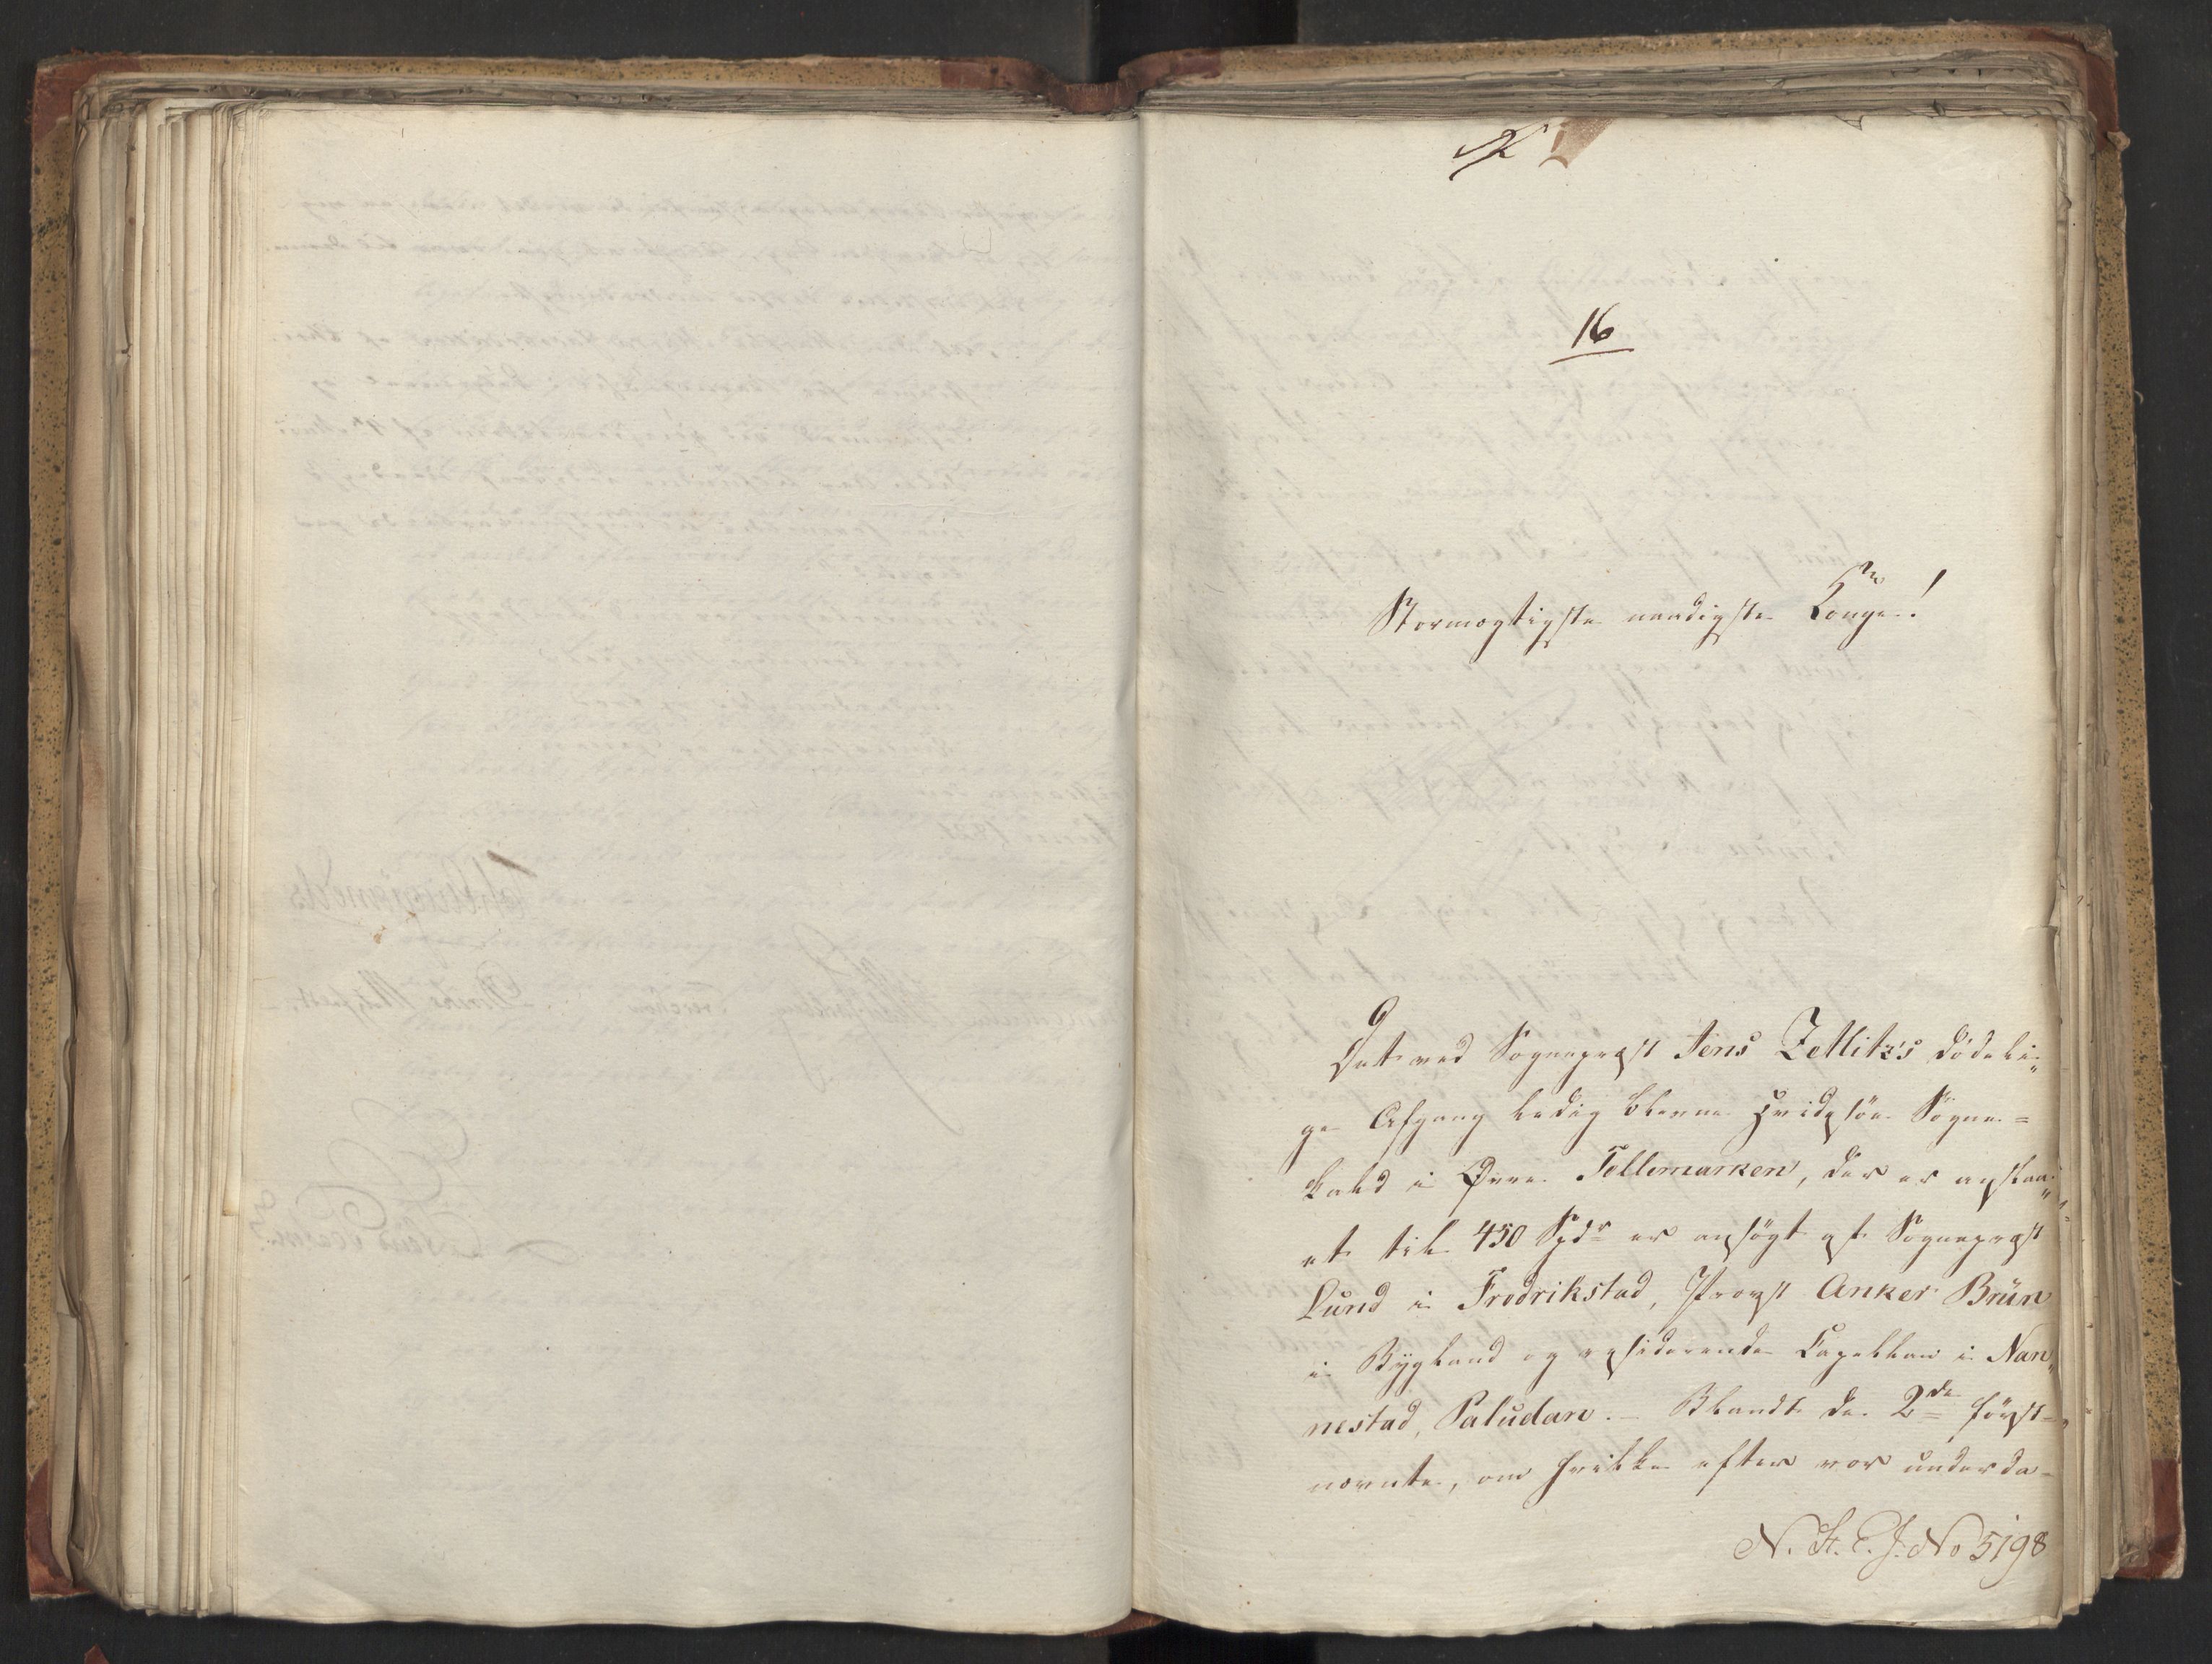 16
Stormægtigste naadigste Konge!
Det ved Sognepræst Jens Zetlitz's dödeli„
ge Afgang ledig blevne Hvidesöe Sogne=
kald i Övre Tellemarken, der er anslaa„
et til 450 Spdr er ansögt af Sognepræst
Lund i Fredrikstad, Provst Anker Brün
i Bygland og residerende Capellan i Nan„
nestad, Paludan. – Blandt de 2de först=
nævnte, om hvilke efter vor underda=
N. St. E. J. No 5198